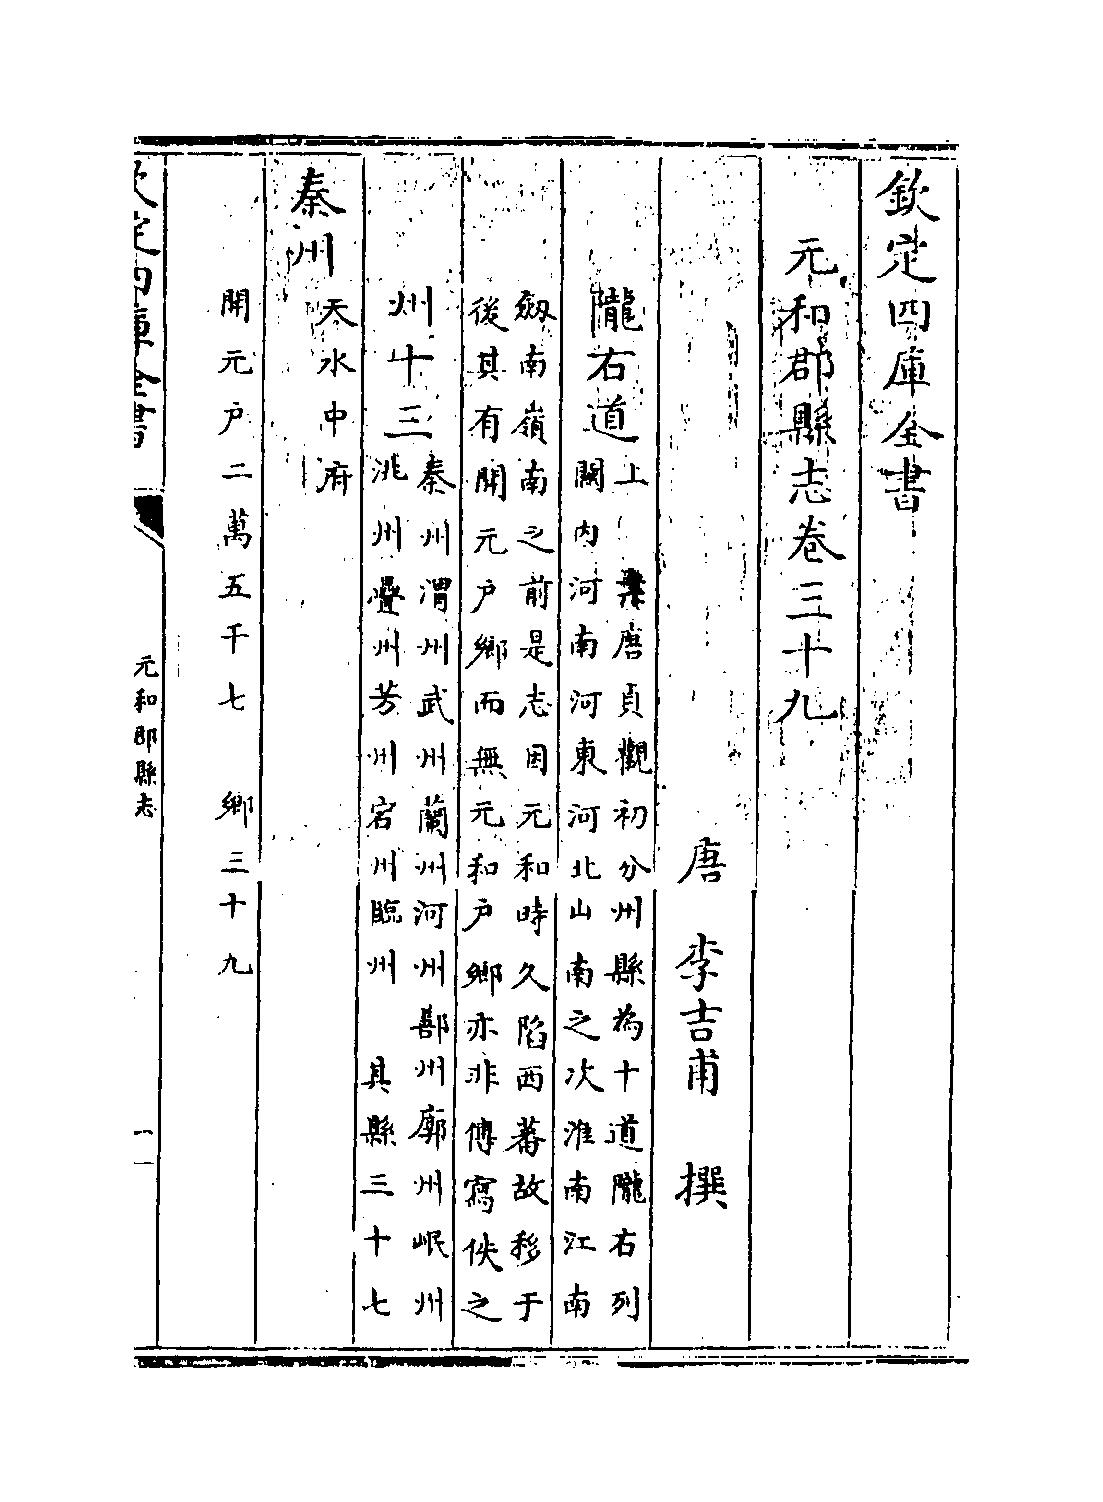 欽定四庫全書
元和郡縣志卷三十九
唐 李吉甫 撰
隴右道上 案唐貞觀初分州縣為十道隴右列
關内河南河東河北山南之次淮南江南
劒南嶺南之前是志因元和時久陷西蕃故移于
後其有開元户鄉而無元和户鄉亦非傳寫佚之
州十三 秦州渭州武州蘭州河州鄯州廓州岷州
洮州疊州芳州宕州臨州 具縣三十七
秦州 天水中府
開元户二萬五千七 鄉三十九
欽定四庫全書 元和郡縣志 一